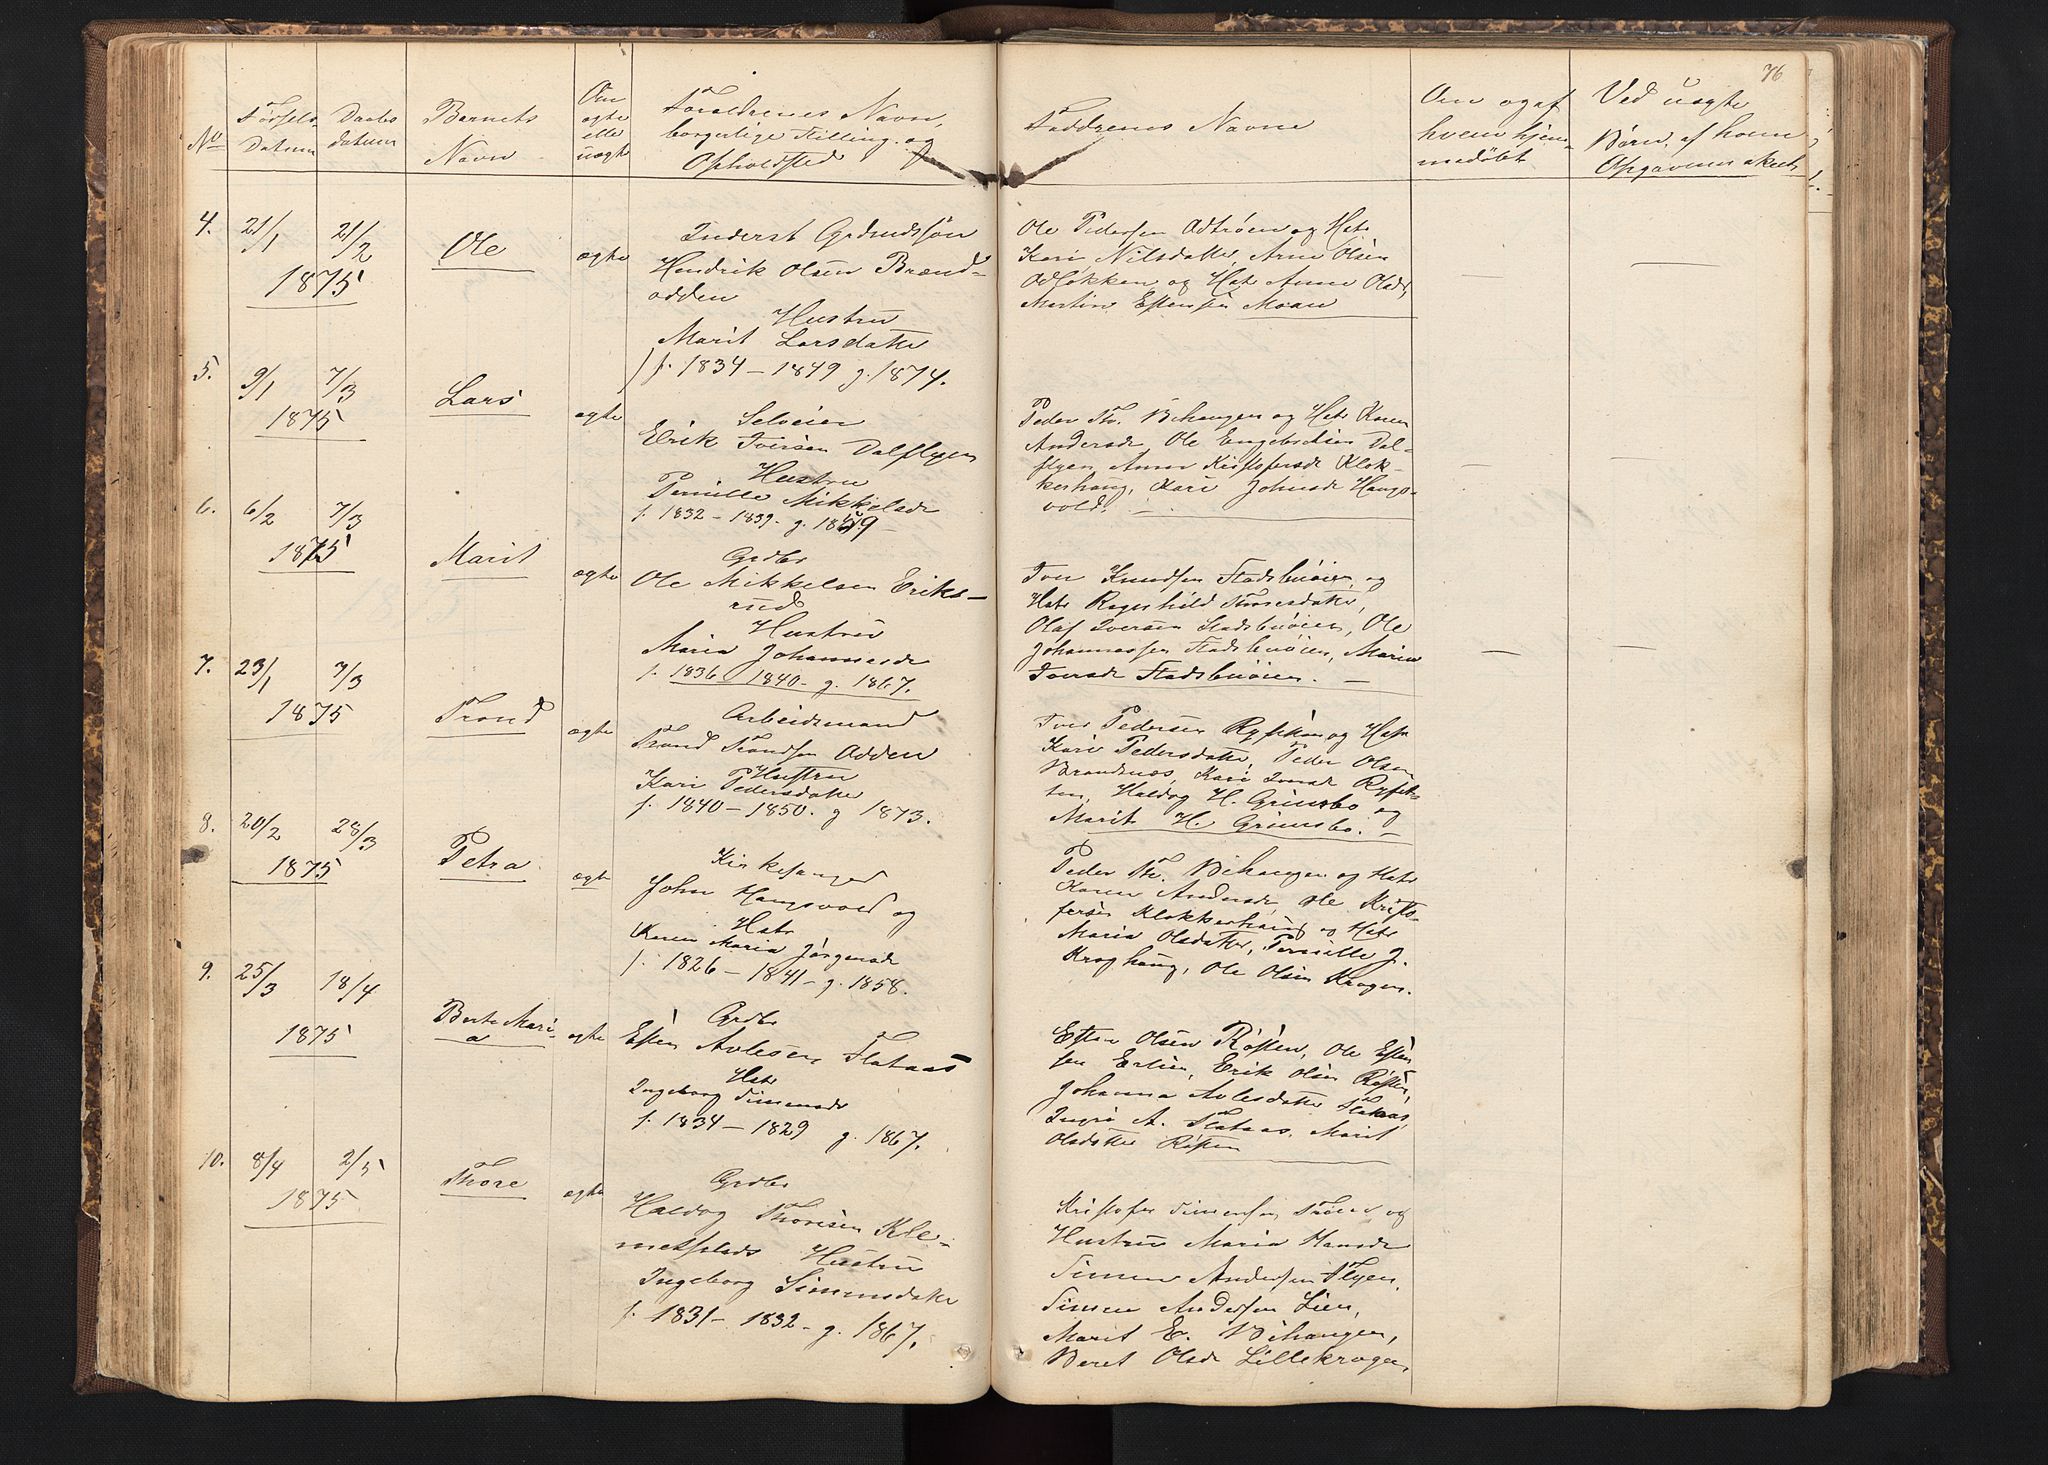 76
No
Fødsels-
Datum
Daabs
datum
Barnets
Navn
Om
ægte
elle
uægte
Forældrenes Navn,
borgerlige Stilling og
Opholdsted
Faddrenes Navne
Om og af
hvem hjem-
medøbt
Ved uægte
Børn, af hvem
Opgaven er skeet
4. 21/1 21/2
1875
Ole
ægte
Inderst
Hendrik Olsen Brænd-
odden
Hustru
Marit Larsdatte
f. 1834 – 1849 g. 1874.
Ole Pedersen og Hstr
Kari Nilsdatte, Arne Olsen
og Hstr Anne Olsd,
Martin Estensen Moan
5. 9/1 7/3
1875
Lars
ægte
Selveier
Erik Iversen Dalflyen
Hustru
Pernille Mikkelsd
f. 1832 – 1839. g. 1859
Peder Th. Bihaugen og Hstr Karen
Andersd, Ole Engebretsen Dal-
flyen, Anne Kristofersd Klok-
kerhaug, Kari Johnsd Haugs-
vold.
6. 6/2 7/3
1875
Marit
ægte
Grdbr
Ole Mikkelsen Eriks-
rud
Hustru
Maria Johannesd
f. 1836 1840 – g. 1867.
Iver Knudsen Stadsbuøien, og
Hstr Ragnhild
Olaf Iversen Stadsbuøien, Ole
Johannessen Stadsbuøien, Maria
Iversd Stadsbuøien. –
7. 23/1 7/3
1875
Trond
ægte
Arbeidsmand
Trond Trondsen Odden
Hustru
Kari Pedersdatte
f. 1840 – 1850. g 1873.
Iver Pedersen og Hstr
Kari Pedersdatte, Peder Olsen
Brandnæs, Kari Iversd
Haldog H. Grimsbo og
Marit H. Grimsbo. –
8. 20/2 28/3
1875
Petra
ægte
Kirkesanger
John Haugsvold og
Hstr
Karen Maria Jørgensd
f. 1826 – 1841 – g. 1858.
Peder Th. Bihaugen og Hstr
Karen Andersd, Ole Kristo-
fersen Klokkerhaug og Hstr
Maria Olsdatte, Pernille J.
Kroghaug, Ole Olsen Krogen.
9. 25/3 18/4
1875
Berte Mari-
a
ægte
Grdbr
Esten Avlesen Flataas
Hstr
Ingeborg Simensd
f. 1834 – 1829 g. 1867.
Esten Olsen Røsten, Ole Esten
sen Erlien, Erik Olsen Røsten,
Johanna Avlesdatte Flataas,
Ingri A. Flataas, Marit
Olsdatte Røsten
10. 8/4 2/5
1875
Thore
ægte
Grdbr
Haldog Thoresen Kle-
metsplads Hustru
Ingeborg Simensdatte
f. 1831 – 1832 – g. 1867.
Kristofer Simensen og
Hustru Maria Hansd
Simen Andersen Flyen,
Simen Andersen Lien,
Marit E. Bihaugen,
Beret Olsd Lillekrogen,